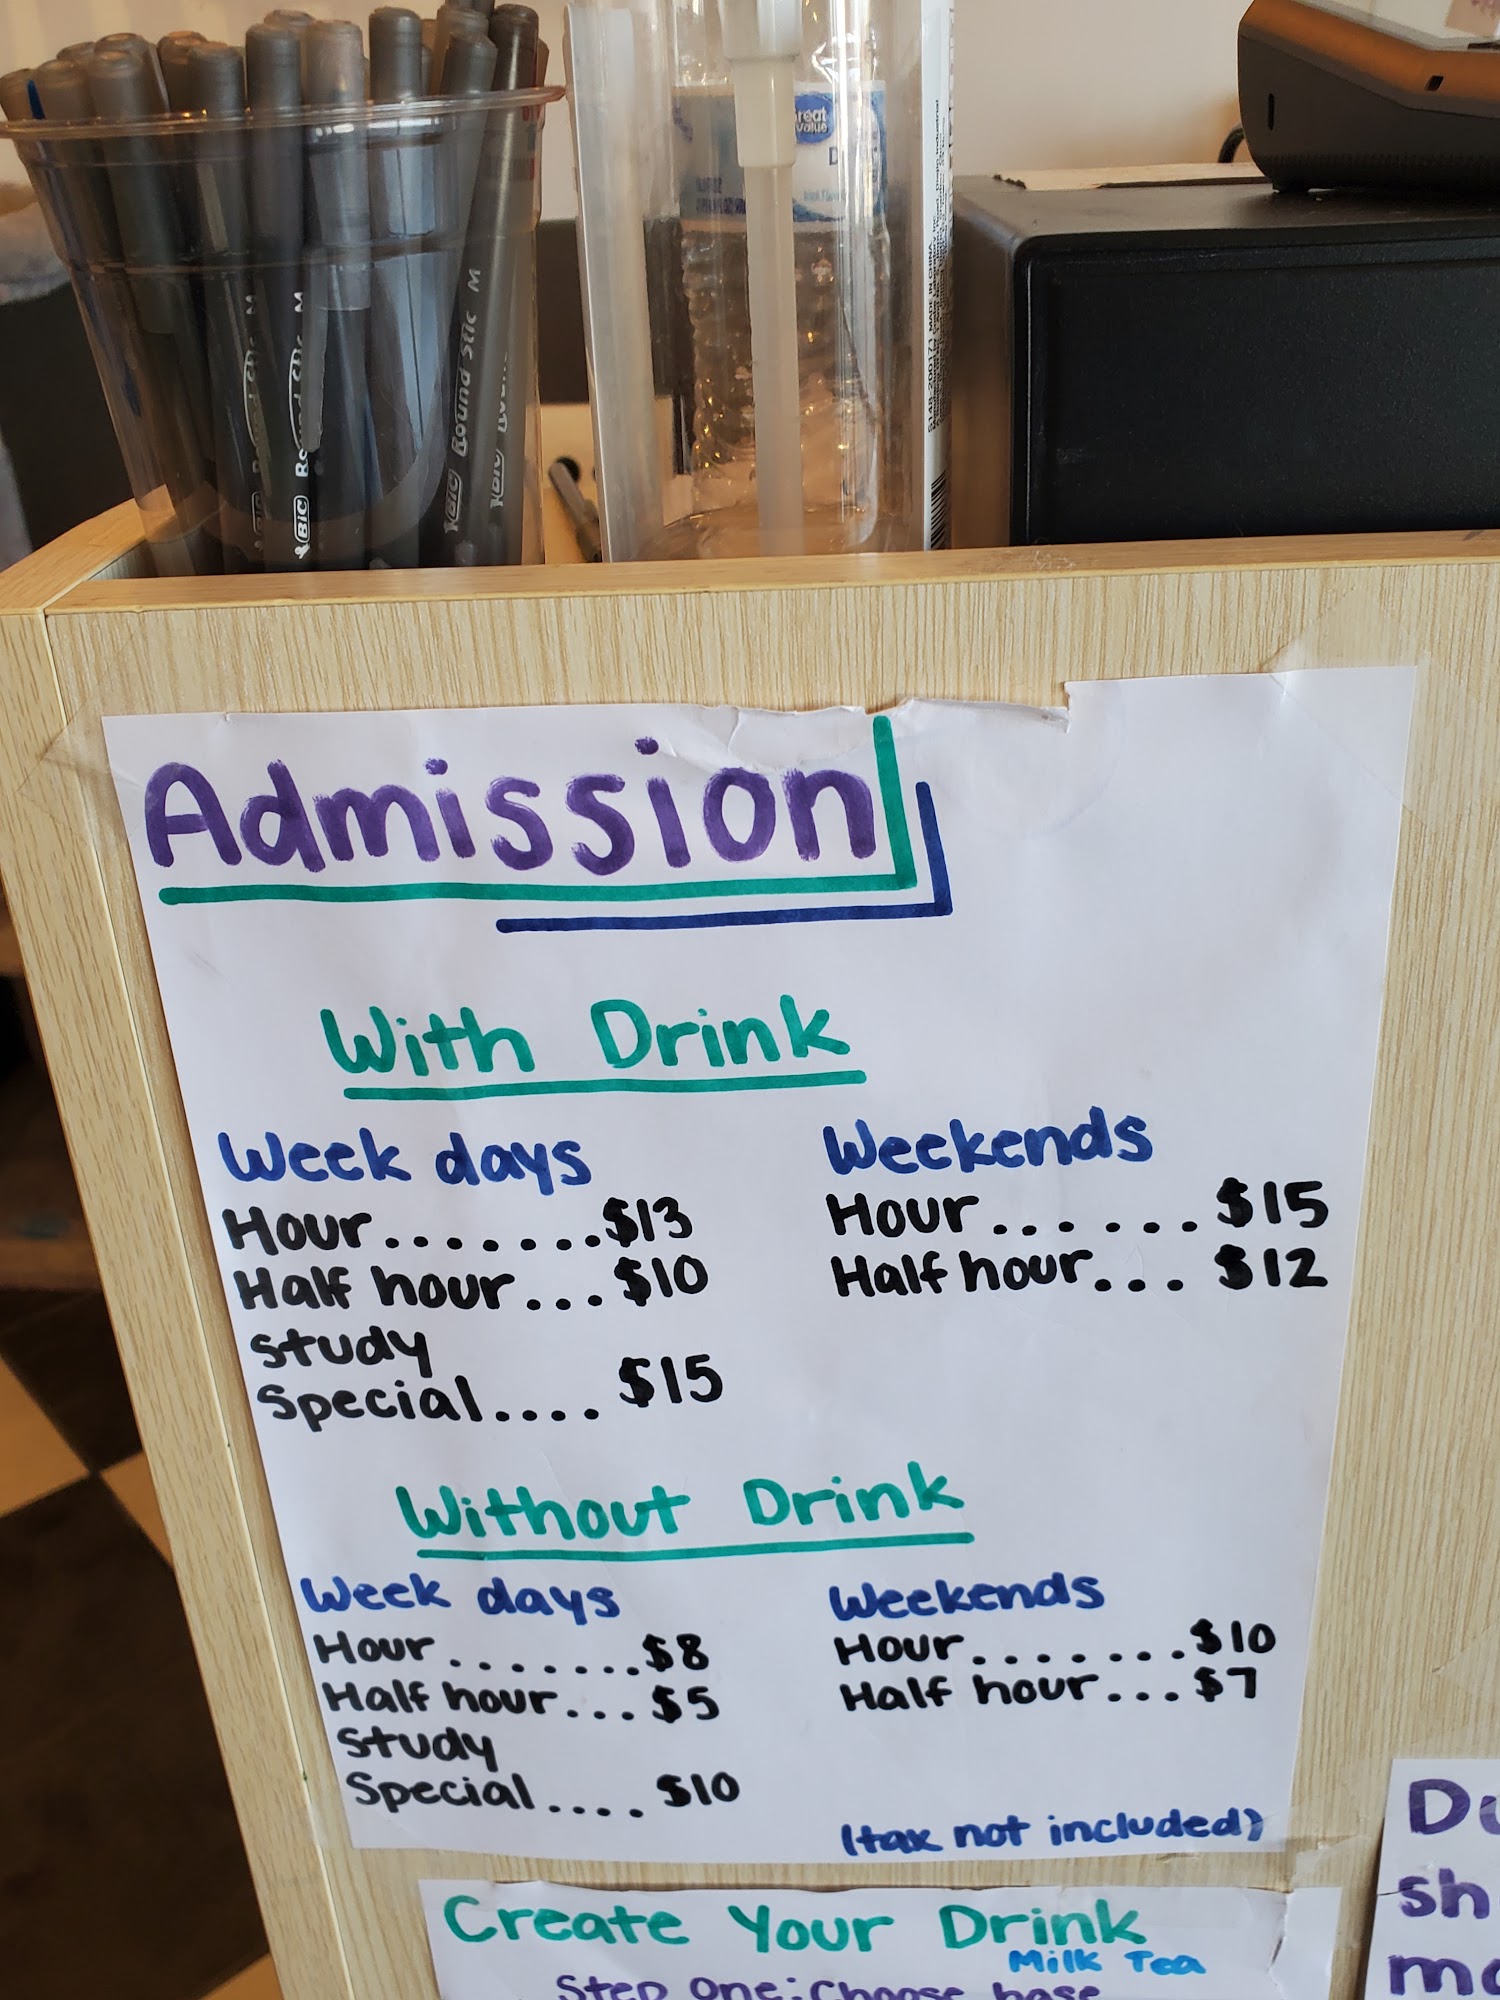 Great Value
BIC Round Stic M
BIC Round Stic M
BIC
MADE IN CHINA
Admission
With Drink
Week days
Hour.......$13
Half hour...$10
Study
Special.... $15
Weekends
Hour.......$15
Half hour... $12
Without Drink
Week days
Hour.......$8
Half hour...$5
Study
Special.... $10
Weekends
Hour.......$10
Half hour...$7
(tax not included)
Create Your Drink
Milk Tea
Step One: Choose base
Du
sh
mo